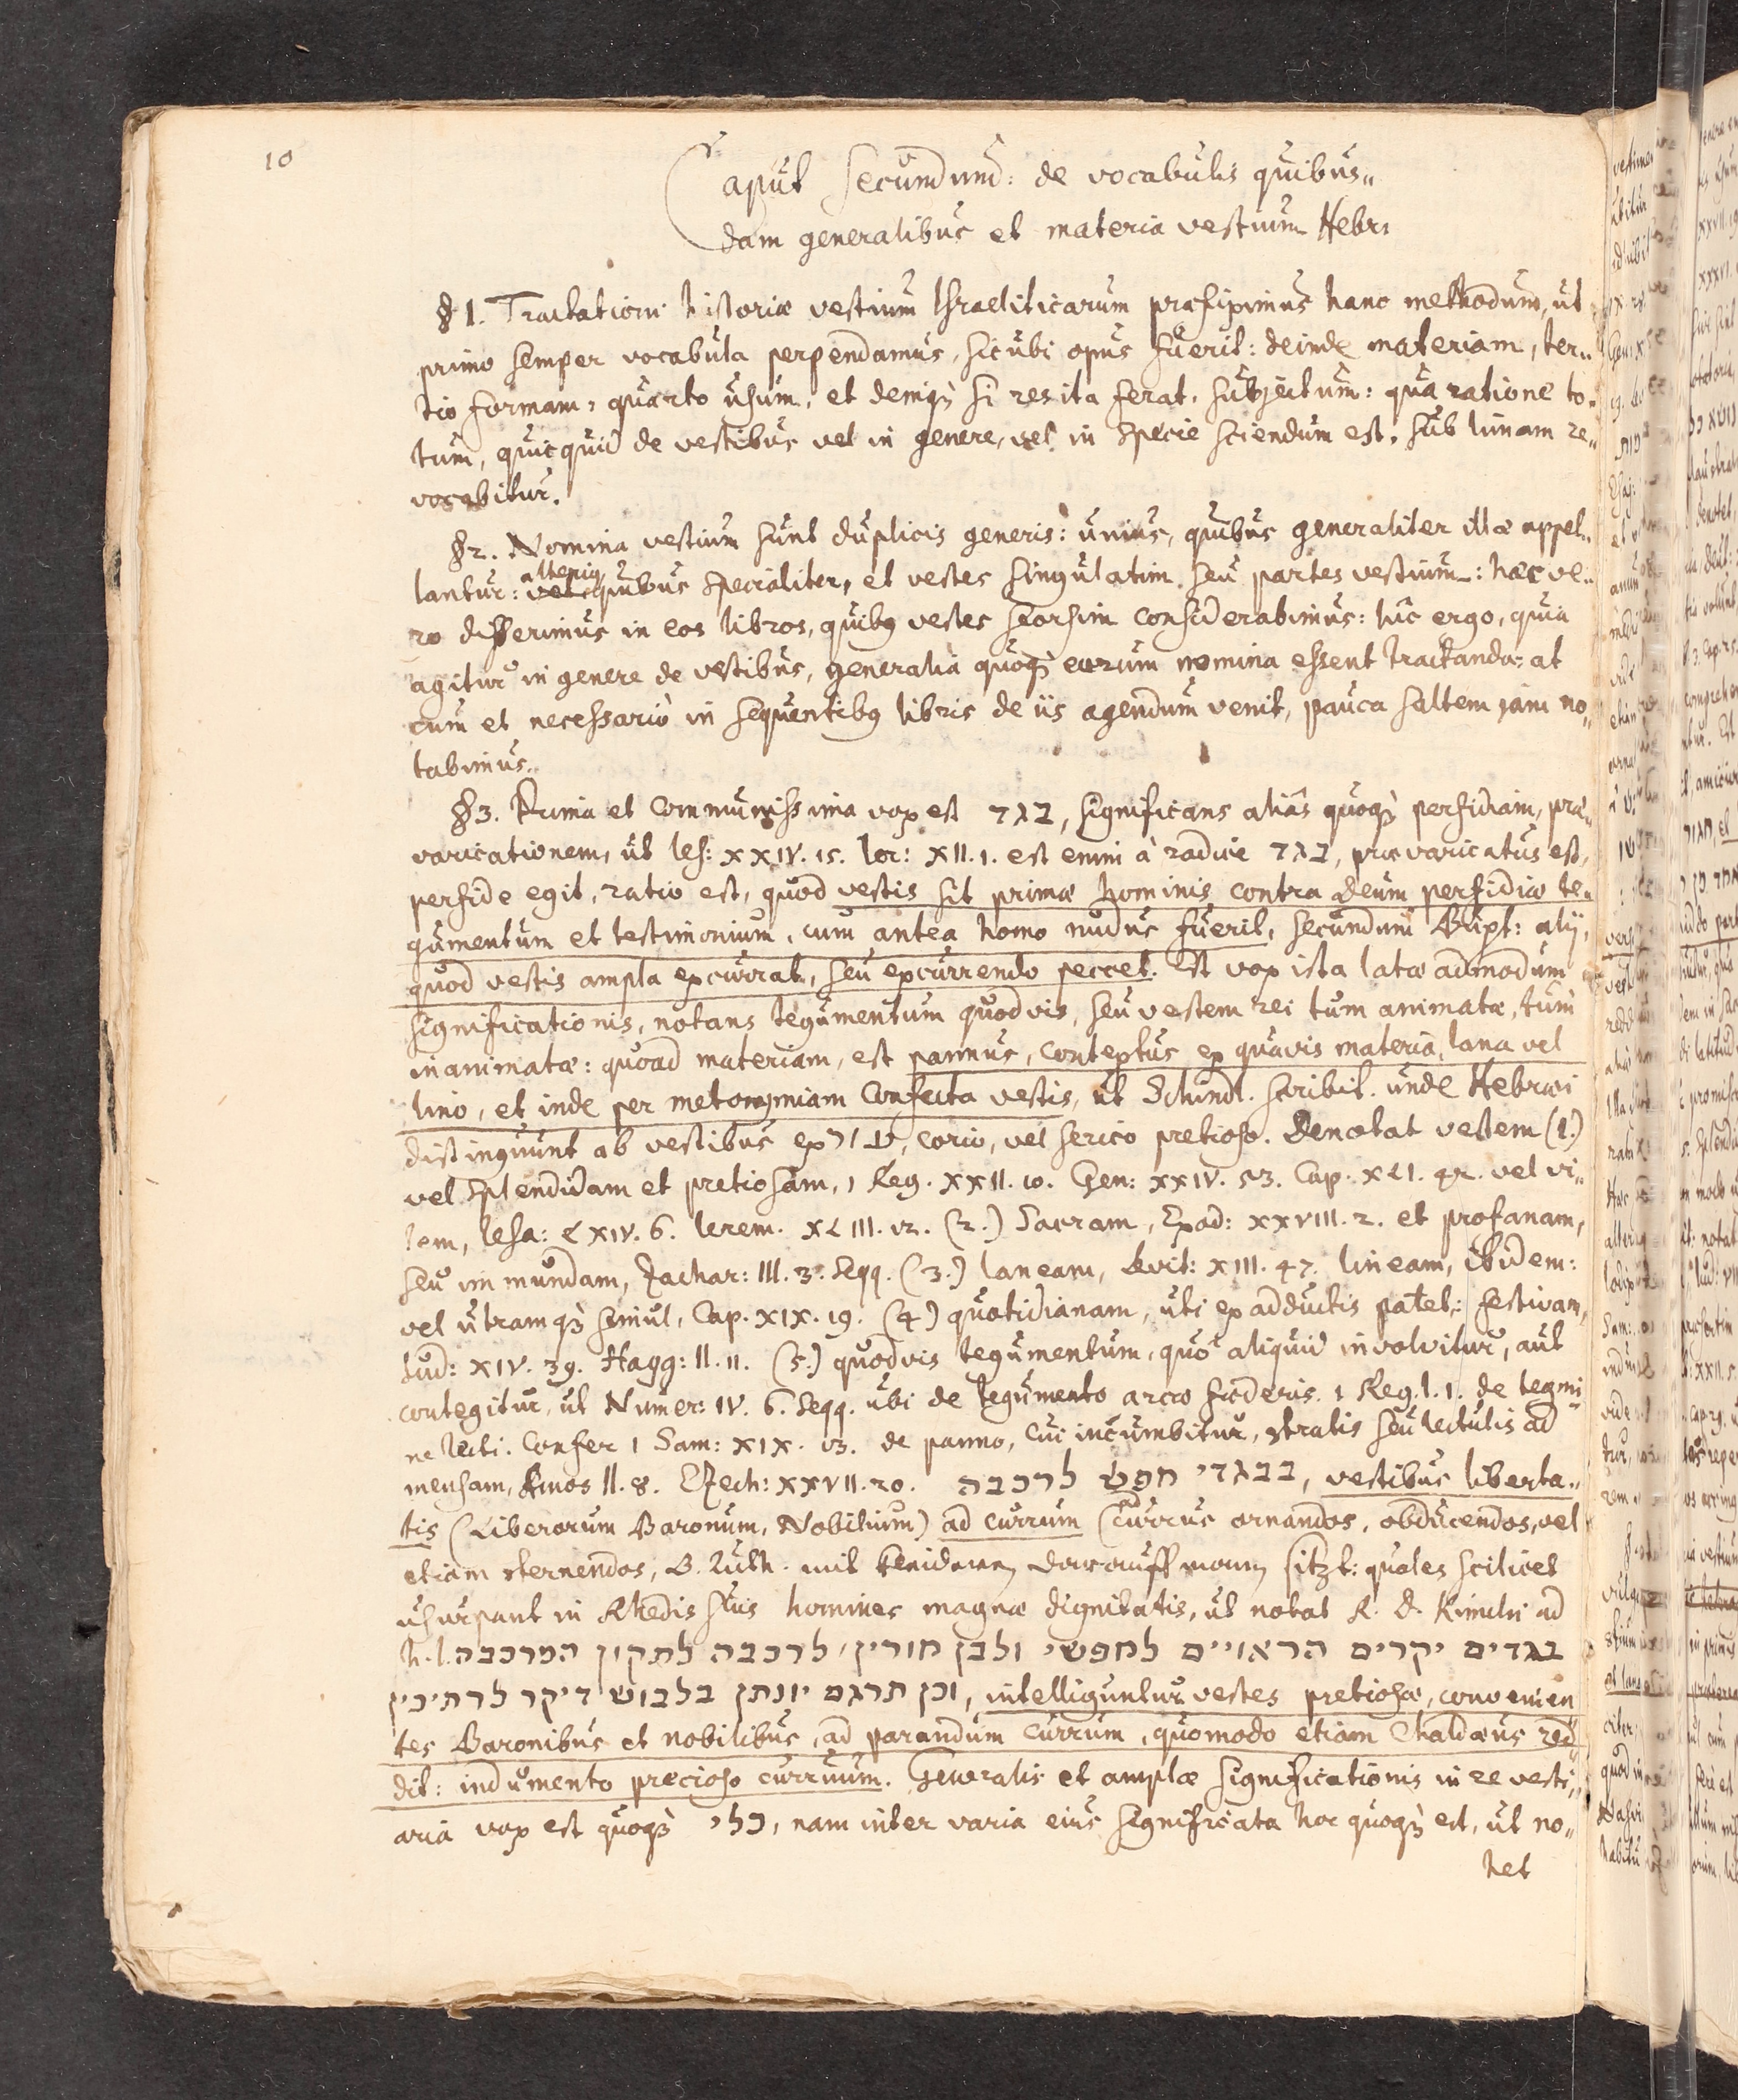 10
Caput secundum: de vocabulis quibus„
dam generalibus et materia vestium Hebr:
§ 1. Tractationi historiæ vestium Israeliticarum præfigimus hanc methodum, ut
primo semper vocabula perpendamus, sicubi opus fuerit: deinde materiam, ter„
tio formam, quarto usum, et deniqꝫ si res ita ferat, subjectum: qua ratione to„
tum, quicquid de vestibus vel in genere, vel in specie sciendum est, sub limam re„
vocabitur.
§ 2. Nomina vestium sunt duplicis generis: unius, quibus generaliter illæ appel„
lantur: alterius quibus specialiter, et vestes singulatim, seu partes vestium: hæc ve„
ro differimus in eos libros, quibꝰ vestes seorsim considerabimus: hîc ergo, quia
agitur in genere de vestibus, generalia quoqꝫ earum nomina essent tractanda: at
cum et necessariò in sequentibꝰ libris de iis agendum venit, pauca saltem jam no„
tabimus.
§ 3. Prima et communissima vox est בגד, significans aliâs quoqꝫ perfidiam, præ„
varicationem, ut Ies: XXIV. 15. Ier: XII. 1. est enim à radice בגד, prævaricatus est,
perfide egit, ratio est, quod vestis sit primæ hominis contra Deum perfidiæ te„
gumentum et testimonium, cum antea homo nudus fuerit, secundum Buxt: alij,
quod vestis ampla excurrat, seu excurrendo peccet. Est vox ista latæ admodum
significationis, notans tegumentum quodvis, seu vestem rei tum animatæ, tum
inanimatæ: quoad materiam, est pannus, contextus ex quavis materia, lana vel
lino, et inde per metonymiam confecta vestis, ut Schindl. scribit. unde Hebræi
distinguunt ab vestibus ex עור, corio, vel serico pretioso. Denotat vestem (1.)
vel splendidam et pretiosam, 1 Reg. XXII. 10. Gen: XXIV. 53. Cap. XLI. 42. vel vi„
lem, Iesa: LXIV. 6. Ierem. XLIII. 12. (2.) Sacram, Exod: XXVIII. 2. et profanam,
seu immundam, Zachar: III. 3. seqq. (3.) laneam, Levit: XIII. 47. lineam, ibidem:
vel utramqꝫ simul, Cap. XIX. 19. (4) quotidianam, uti ex adductis patet: festivam,
Iud: XIV. 39. Hagg: II. 11. (5.) quodvis tegumentum, quo aliquid involvitur, aut
contegitur, ut Numer: IV. 6. seqq. ubi de tegumento arcæ fœderis. 1 Reg. I. 1. de tegmi„
ne lecti. Confer 1 Sam: XIX. 13. de panno, cui incumbitur, stratis seu lectulis ad
mensam, Amos II. 8. Ezech: XXVII. 20. בבגדי חפש לרכבה, vestibus liberta„
tis (Liberorum Baronum, Nobilium) ad currum (currus ornandos, obducendos, vel
etiam sternendos, B. Luth. mit darauff man sitzt: quales scilicet
usurpant in Rhedis suis homines magnæ dignitatis, ut notat R. D. Kimchi ad
h. l. בגדים יקרים הראויים לחפשי ולבן חורין, לרכבה לתקון המרכבה
וכן תרגם יונתן בלבוש דיקר לרתיכין, intelliguntur vestes pretiosæ, convenien
tes Baronibus et nobilibus, ad parandum currum, quomodo etiam Chaldæus red„
dit: indumento precioso curruum. Generalis et amplæ significationis in re vesti„
aria vox est quoqꝫ כלי, nam inter varia eius significata hoc quoqꝫ est, ut no„
tet